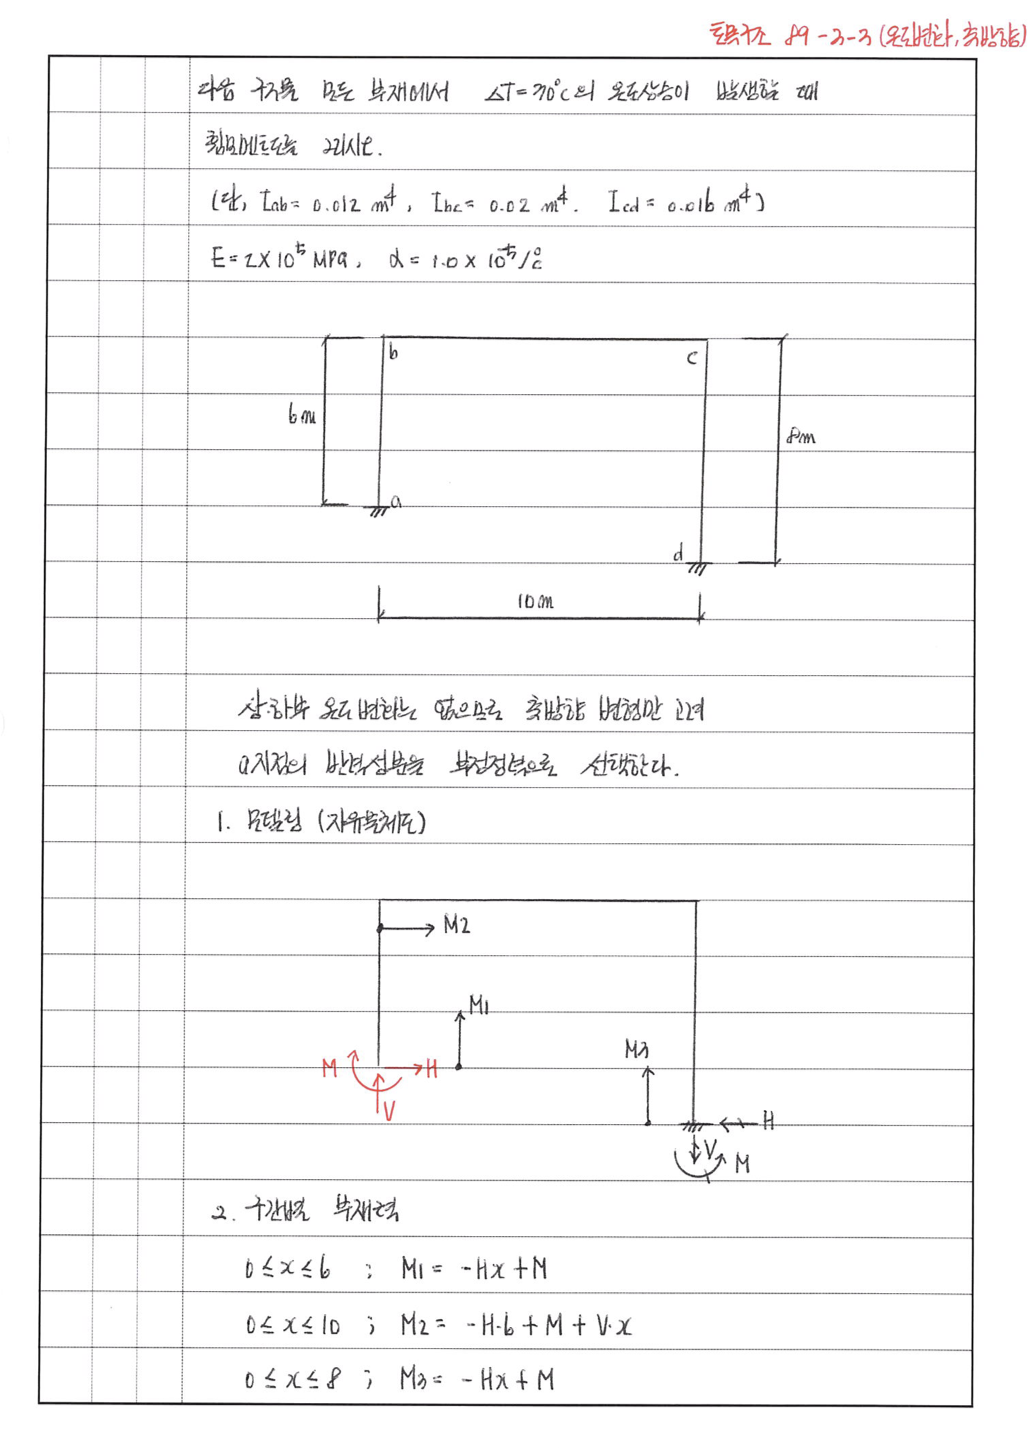 토목구조 89-3-3 (온도변화, 축방향)
다음 구조물 모든 부재에서 ΔT=30°C의 온도상승이 발생할 때
휨모멘트도를 그리시오.
(단, Iab = 0.012 m⁴, Ibc = 0.02 m⁴. Icd = 0.016 m⁴)
E = 2×10⁵ MPa, α = 1.0 × 10⁻⁵/°C
b
c
6m
8m
a
d
10m
상·하부 온도변화는 없으므로 축방향 변형만 고려
a지점의 반력성분을 부정정력으로 선택한다.
1. 모델링 (자유물체도)
M2
M1
M3
M
H
V
H
V
M
2. 구간별 부재력
0 ≤ x ≤ 6 ; M1 = -Hx + M
0 ≤ x ≤ 10 ; M2 = -H·6 + M + V·x
0 ≤ x ≤ 8 ; M3 = -Hx + M